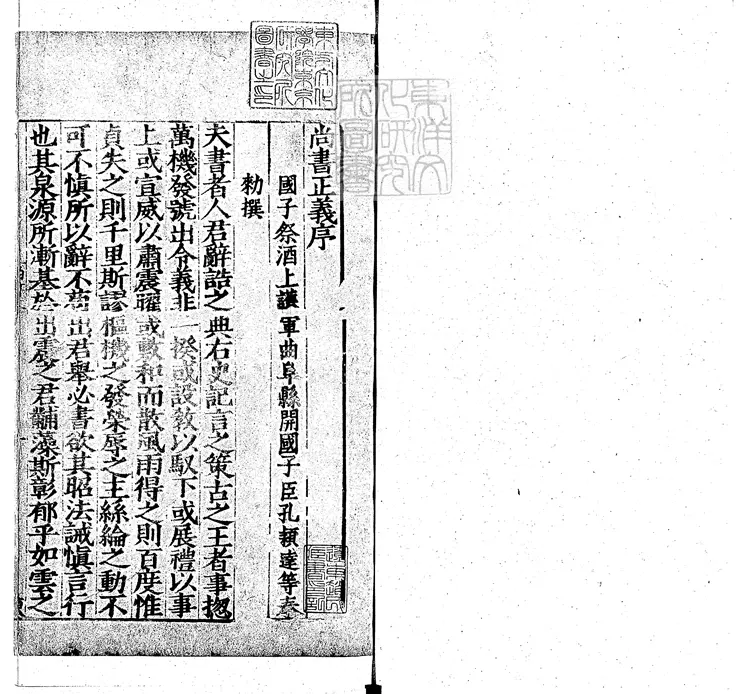 尚書正義序
國子祭酒上護軍曲阜縣開國子臣孔穎達等奉
勑撰
夫書者人君辭誥之典右史記言之策古之王者事揔
萬機發號出令義非一揆或設教以馭下或展禮以事
上或宣威以肅震曜或敷和而散風雨得之則百度惟
貞失之則千里斯謬樞機之發榮辱之主絲綸之動不
可不愼所以辭不苟出君舉必書欲其昭法誡愼言行
也其泉源所漸基於出震之君黼藻斯彰郁乎如雲之
東方文化
學院京京
研究所
圖書之印
東洋文
化研究
所圖書